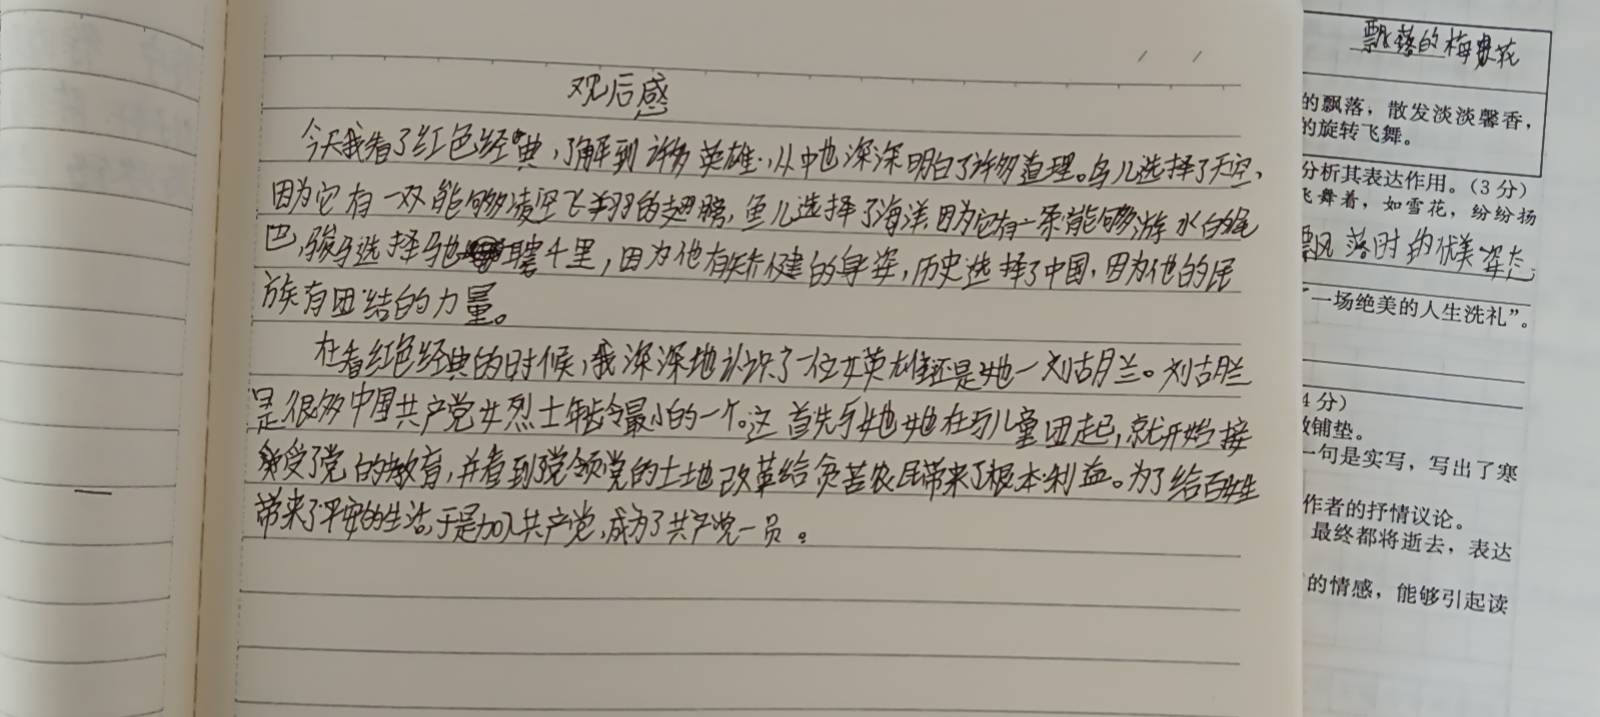 观后感
今天我看了红色经典,了解到许多英雄,从中也深深明白了许多道理。鸟儿选择了天空、
因为它有一双能够凌空飞翔的翅膀,鱼儿选择了海洋,因为它有一条能够游水的尾
巴,骏马选择驰骋千里,因为他有矫健的身姿,历史选择了中国,因为他的民
族有团结的力量。
在看红色经典的时候,我深深地认识了一位女英雄还是她一刘古月兰。刘古月兰
是很多中国共产党女烈士年龄最小的一个。这首先与她她在与儿童团起,就开始接
受了党的教育,并看到党领党的土地改革给贫苦农民带来了根本利益。为了给百姓
带来了平安的生活,于是加入共产党,成为了共产党一员。
飘落的梅花
的飘落,散发淡淡馨香,
的旋转飞舞。
分析其表达作用。(3分)
飞舞着,如雪花,纷纷扬
飘落时的优美姿态
一场绝美的人生洗礼”。
4分)
铺垫。
一句是实写,写出了寒
作者的抒情议论。
最终都将逝去,表达
的情感,能够引起读